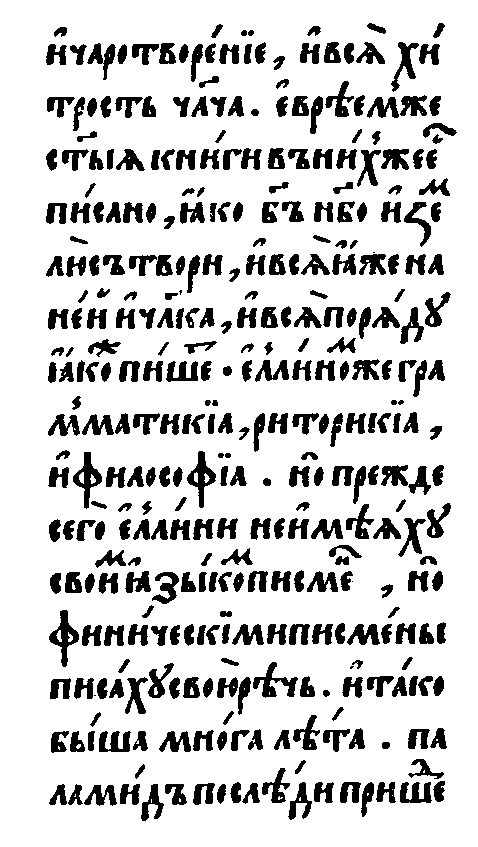 и҆ чаротворе́нїе, и҆ всѧ̀ хи́
трость ча҃ча. є҆врѣе́м же
ст҃ыѧ книги въ ни́хже є҆с̑
пи́сано, ꙗ҆́ко бг҃ъ нб҃о и҆ зе́м
лю̀ сътвори, и҆ всѧ̀ ꙗ҆́же на
не́й и҆ чл҃ка, и҆ всѧ̀ поря́ду
ꙗ҆́кож пи́шет · є҆́ллином же гра
мматикїа, риторикїа,
и҆ философїа . но҆ прежде
сего̀ є҆́ллини не и҆мѣѧ́ху
свои́м ꙗ҆зы́ком писмен, но҆
фини́ческїми писме́ны
писа́ху свою̀ рѣчь. и҆ та́ко
бы́ша мно́га лѣ́та . па
лами́дъ послѣ́ди прише́д